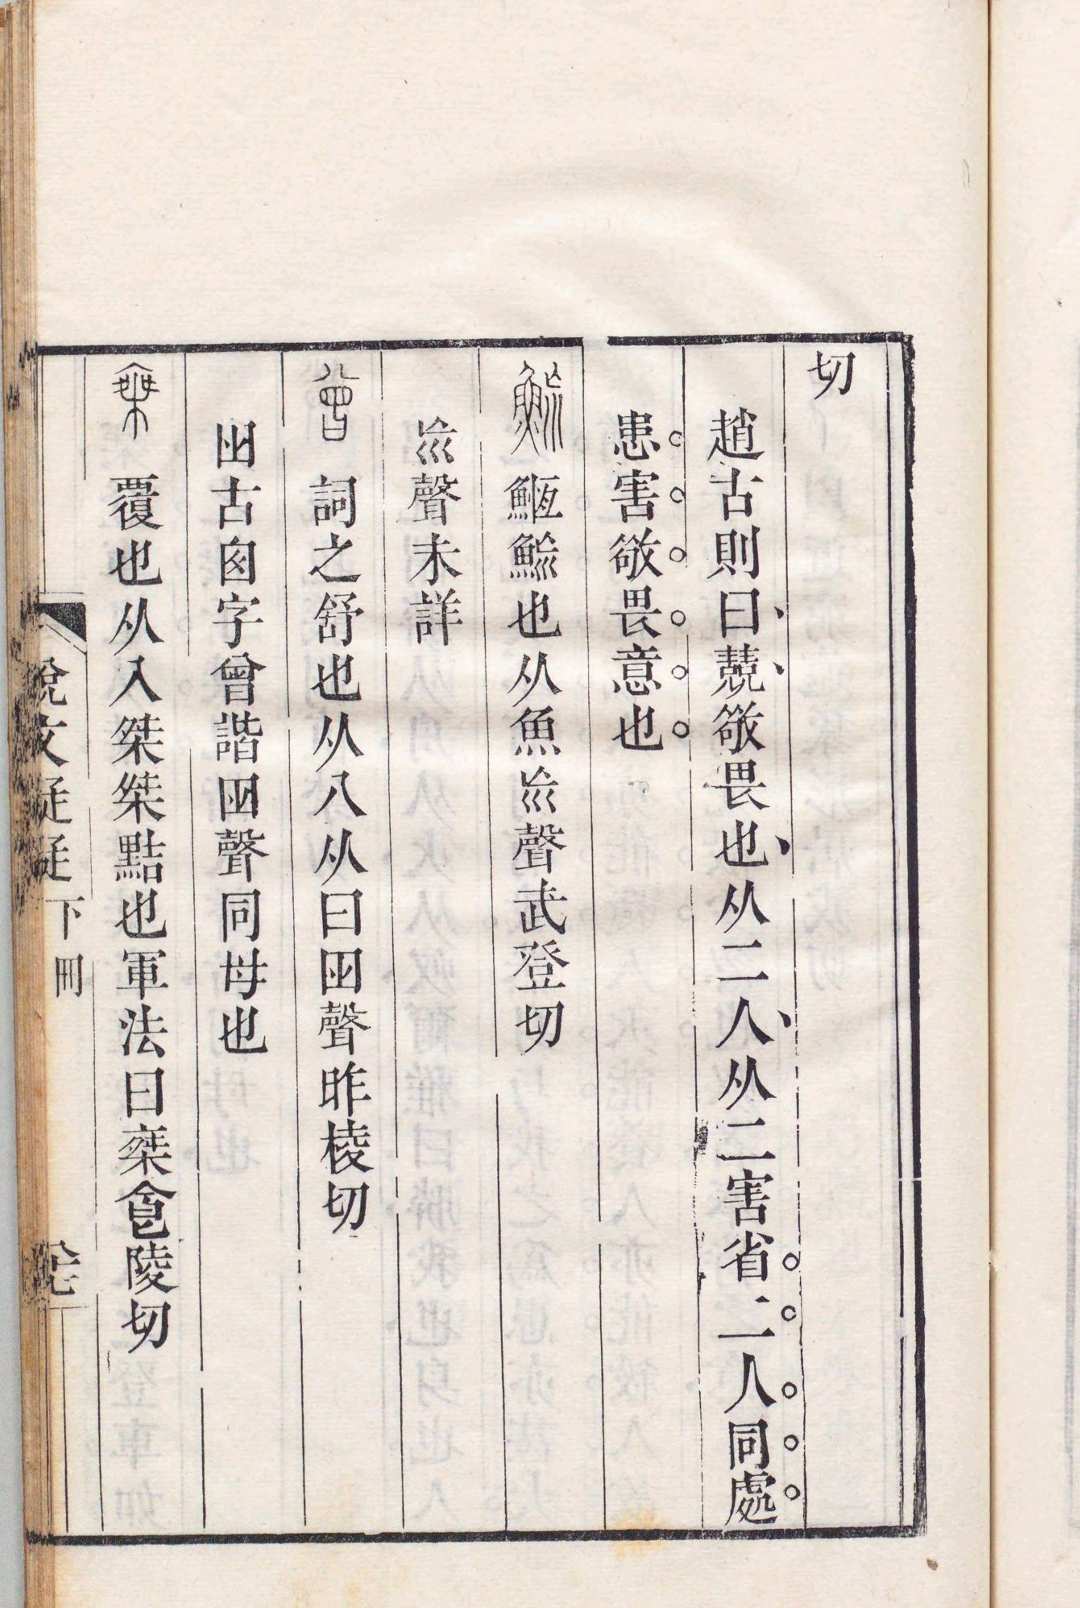 切
趙古則曰兢敬畏也从二人从二害省二人同處
患害敬畏意也
䱭䱴也从魚巛聲武登切
聲未詳
曾 詞之舒也从八从曰囪聲昨棱切
古囪字曾諧囪聲同母也
椉 覆也从入桀桀黠也軍法曰椉食陵切
說文疑疑下冊